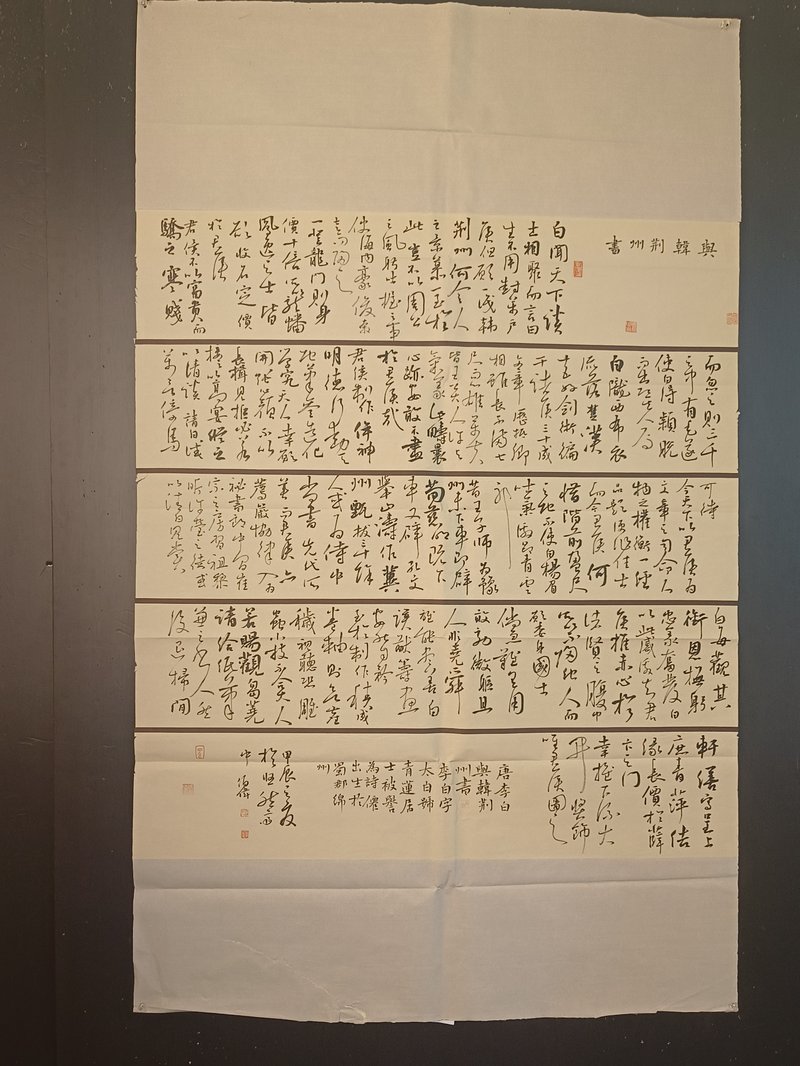 與韓荊州書
白聞天下談
士相聚而言曰
生不用封萬戶
侯但願一識韓
荊州何令人
之景慕一至於
此豈不以周公
之風躬吐握之事
使海內豪俊奔
走而歸之
一登龍門則身
價十倍所以龍蟠
鳳逸之士皆
欲收名定價
於君侯
君侯不以富貴而
驕之寒賤
而忽之則三千
之中有毛遂
使白得穎脫
而出即其人焉
白隴西布衣
流落楚漢
十五好劍術徧
干諸侯三十成
文章歷抵卿
相雖長不滿七
尺而心雄萬夫
皆王公大人許與
氣義此疇曩
心跡安敢不盡
於君侯哉
君侯制作侔神
明德行動天
地筆參造化
學究天人幸願
開張心顏不以
長揖見拒必若
接之以高宴縱之
以清談請日試
萬言倚馬
可待
今天下以君侯為
文章之司命人
物之權衡一經
品題便作佳士
而今君侯何
惜階前盈尺
之地不使白揚眉
吐氣激昂青雲
耶
昔王子師為豫
州未下車即辟
荀慈明既下
車又辟孔文
舉山濤作冀
州甄拔三十餘
人或為侍中
尚書先代所
美而君侯亦
薦嚴協律入為
秘書郎中間崔
宗之房習祖黎
昕許瑩之徒或
以清白見賞
白每觀其
銜恩撫躬
忠義奮發白
以此感激知君
侯推赤心於
諸賢之腹中
所以不歸他人而
願委身國士
倘急難有用
敢效微軀且
人非堯舜
誰能盡善白
謨猷籌畫
安能自矜
至於制作積成
卷軸則欲塵
穢視聽恐雕
蟲小技不合大人
若賜觀芻蕘
請給紙筆
兼之書人然
後退掃閒
軒繕寫呈上
庶青萍結
綠長價於薛
卞之門
幸推下流大
開獎飾
唯君侯圖之
唐李白
與韓荊
州書
李白字
太白號
青蓮居
士被譽
為詩僊
出生於
蜀郡綿
州
甲辰之夏